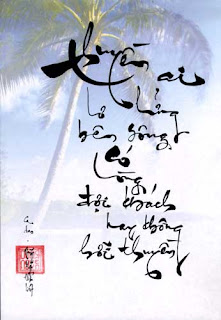 thuyền ai
lơ lửng
bên sông
có lòng
đợi khách
hay không
hỡi thuyền